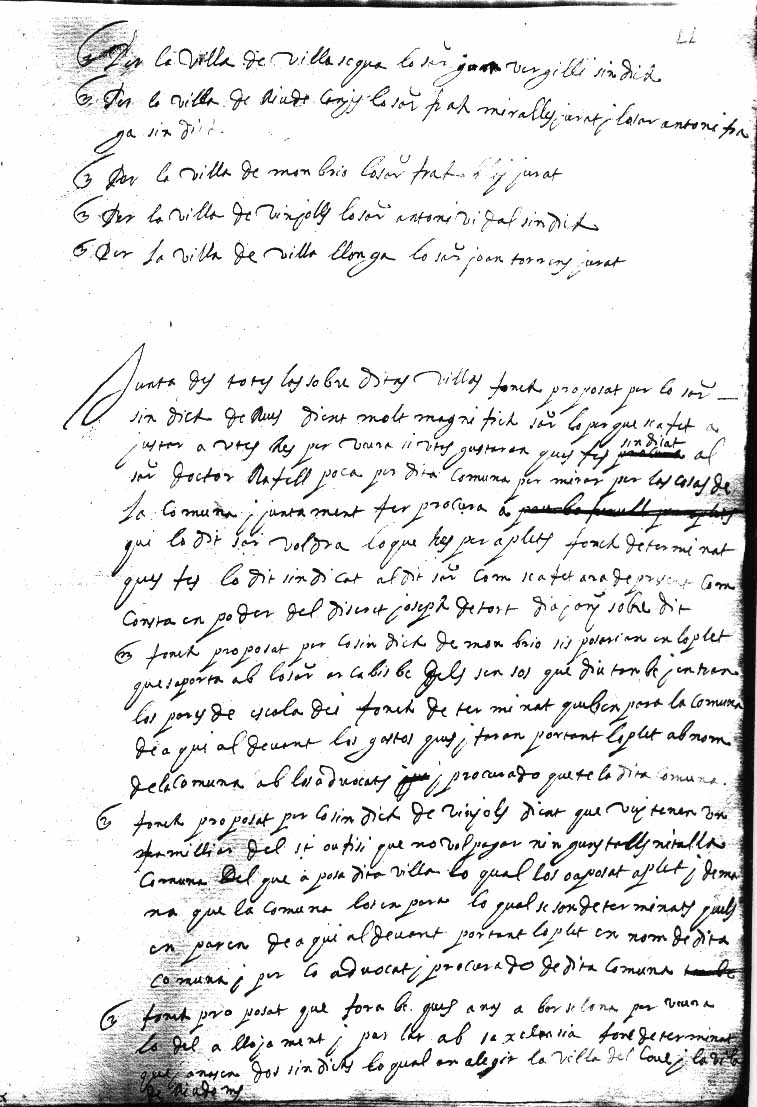 Per la villa de villasequa lo sʳ juan vergilli sindich
Per la villa de Riudecanys lo sʳ frah miralles jurat j lo sʳ antoni fra
ga sindich
Per la villa de monbrio lo sʳ frah jurat
Per la villa de vinjolls lo sʳ antoni vidal sindich
Per la villa de villallonga lo sʳ joan torrens jurat
Junta des totes las sobre ditas villas fonch proposat per lo sʳ
sindich de Reus dient molt magnifich sʳ lo perque se a fet a
justar a vtes hes per veura si vtes gustaran ques fes sindicat al
sʳ doctor Rafell poca per dita comuna per mirar per las cosas de
la comuna j juntament fer procura a
qui lo dit sʳ voldra lo que hes per aplets fonch determinat
ques fes lo dit sindicat al dit sʳ com se a fet ara de present com
consta en poder del discret joseph detort dia j anỹ sobre dit
fonch proposat per lo sindich de monbrio sis posarian en lo plet
que saporta ab lo sʳ arcabisbe dels sensos que diu tanbe j entran
los pors de escoladei fonch determinat quels en para la comuna
de a qui al devant los gastos ques j faran portant lo plet ab nom
de la comuna ab los advocats j procurado que te la dita comuna
fonch proposat per lo sindich de vinjolls dient que vuj tenen un
familliar del st oufisi que no vol pagar ningunstalls ni talla
comuna del que a posa dita villa lo qual los a posat a plet j dema
na que la comuna los en para lo qual se son determinats quels
en paren de a qui al devant portant lo plet en nom de dita
comuna j per lo advocat j procurado de dita comuna
fonch proposat que fora be ques anes a barselona per veura
lo del allojament j parlar ab sa xelensia fonc determinat
que anasen dos sindichs lo qual an alegir la villa del j la villa
de Riudoms